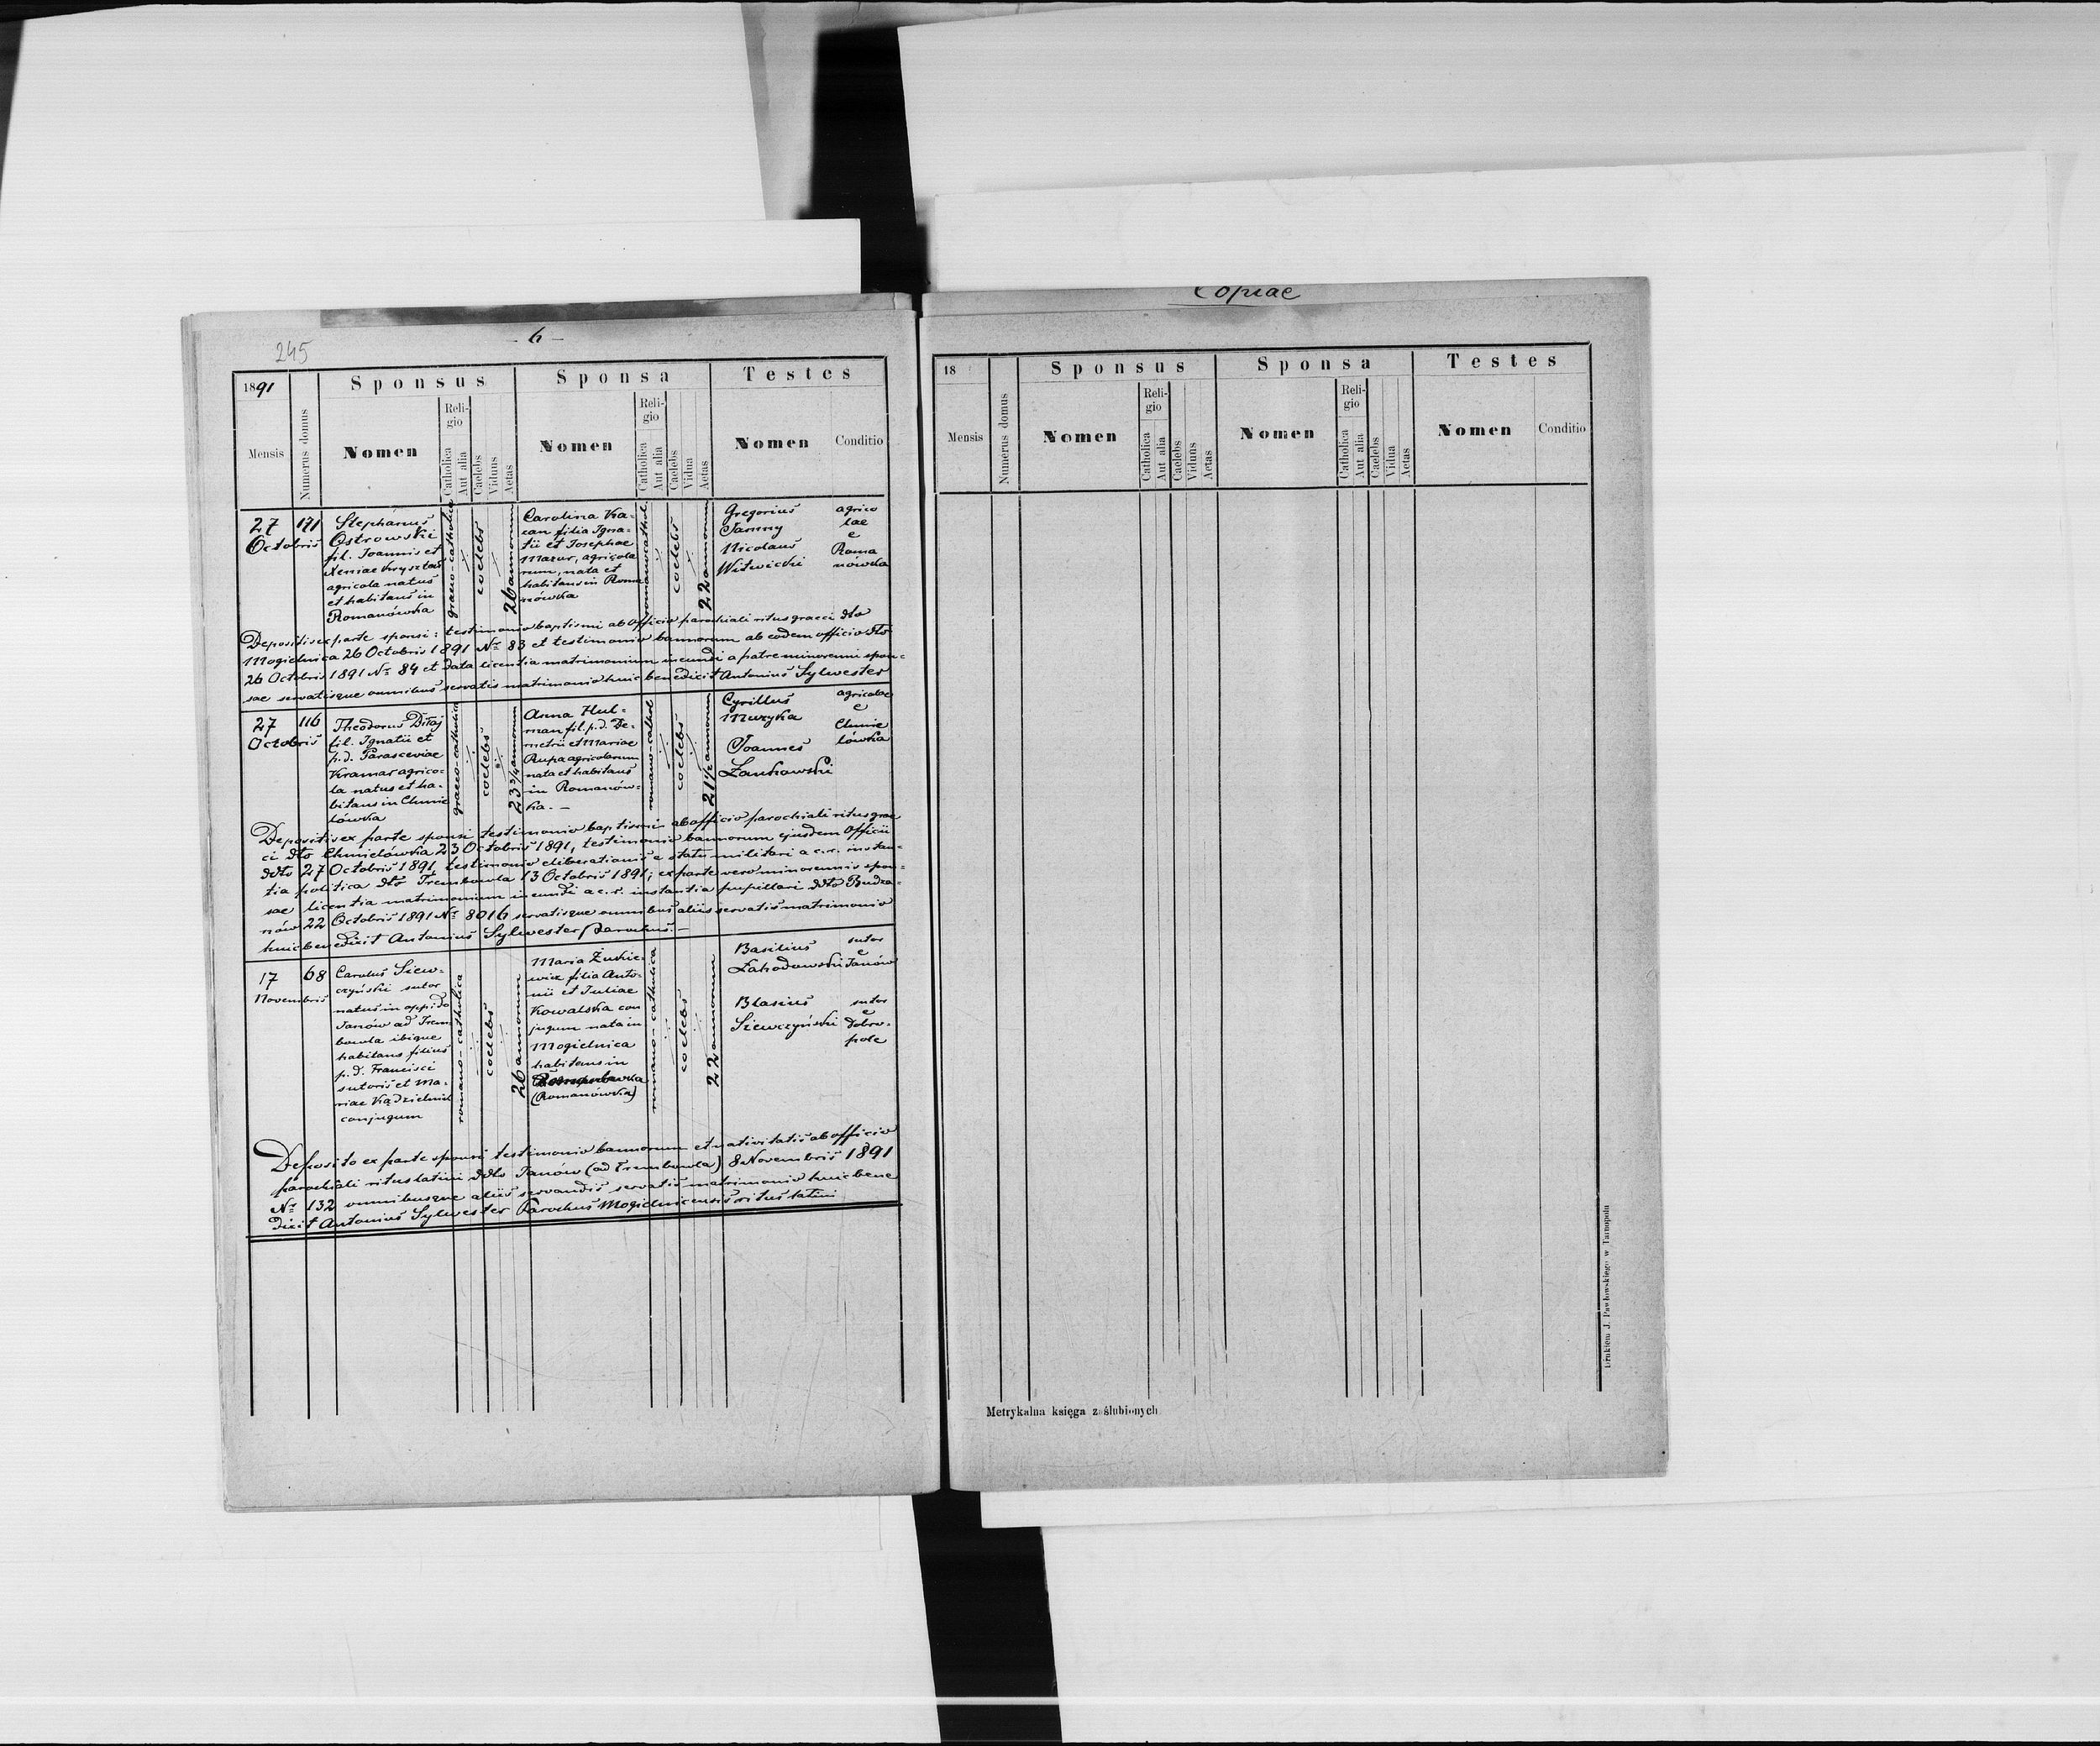 Copiae
245
- 6 -
1891
Mensis
Numerus domus
Sponsus
Nomen
Religio
Catholica
Aut alia
Caelebs
Viduus
Aetas
Sponsa
Nomen
Religio
Catholica
Aut alia
Caelebs
Vidua
Aetas
Testes
Nomen
Conditio
27
Octobris
171
Stephanus
Ostrowski
fil. Joannis et
Xeniae Krysztan
agricola natus
et habitans in
Romanówka
graeco-catholica
coelebs
26 annorum
Carolina Ka-
can filia Igna-
tii et Josephae
Mazur, agricola
rum, nata et
habitans in Roma
nówka
romano cathol.
coelebs
22 annorum
Gregorius
Jamny
Nicolaus
Witwicki
agrico
lae
e
Roma
nówka
Depositis ex parte sponsi: testimonio baptismi ab officio parochiali ritus graeci dto
Mogielnica 26 Octobris 1891 Nr 83 et testimonio bannorum ab eodem officio dto
26 Octobris 1891 Nr 84 et data licentia matrimonium ineundi a patre minorenni spon-
sae servatisque omnibus servatis matrimonio huic benedicit Antonius Sylwester
27
Octobris
116
Theodorus Ditaj
fil. Ignatii et
p.d. Parasceviae
Kramar agrico-
la natus et ha-
bitans in Chmie
lówka
graeco-catholica
coelebs
23 3/4 annorum
Anna Hul-
man fil. p.d. De-
metrii et Mariae
Rupa agricolarum
nata et habitans
in Romanów-
ka. —
romano-cathol
coelebs
21 1/2 annorum
Cyrillus
Muzyka
Joannes
Zankowski
agricolae
e
Chmie
lówka
Depositis ex parte sponsi testimonio baptismi ab officio parochiali ritus grae
ci dto Chmielówka 23 Octobris 1891, testimonio bannorum ejusdem Officii
ddto 27 Octobris 1891, testimonio eliberationis e statu militari a c.r. instan-
tia politica dto Trembowla 13 Octobris 1891; ex parte vero minorennis spon-
sae licentia matrimonium ineundi a c.r. instantia pupillari ddto Budza-
nów 22 Octobris 1891 Nr 8016 servatisque omnibus aliis servatis matrimonio
huic benedixit Antonius Sylwester parochus. —
17
Novembris
68
Carolus Siew-
czyński sutor
natus in oppido
Janów ad Trem
bowla ibique
habitans filius
p.d. Francisci
sutoris et Ma-
riae Kądzielnik
conjugum
romano-catholica
coelebs
26 annorum
Maria Żukie-
wicz filia Anto-
nii et Juliae
Kowalska con
jugum nata in
Mogielnica
habitans in
(Romanówka)
romano-catholica
coelebs
22 annorum
Basilius
Zahodowski
Blasius
Siewczyński
sutor
e
Janów
sutor
e
Dobro-
pole
Deposito ex parte sponsi testimonio bannorum et nativitatis ab officio
parochiali ritus latini ddto Janów (ad Trembowla) 8 Novembris 1891
Nr 132 omnibusque aliis servandis servatis matrimonio huic bene
dicit Antonius Sylwester Parochus Mogielnicensis ritus latini
18
Mensis
Numerus domus
Sponsus
Nomen
Religio
Catholica
Aut alia
Caelebs
Viduus
Aetas
Sponsa
Nomen
Religio
Catholica
Aut alia
Caelebs
Vidua
Aetas
Testes
Nomen
Conditio
Metrykalna księga zaślubionych
Drukiem J. Pawłowskiego w Tarnopolu